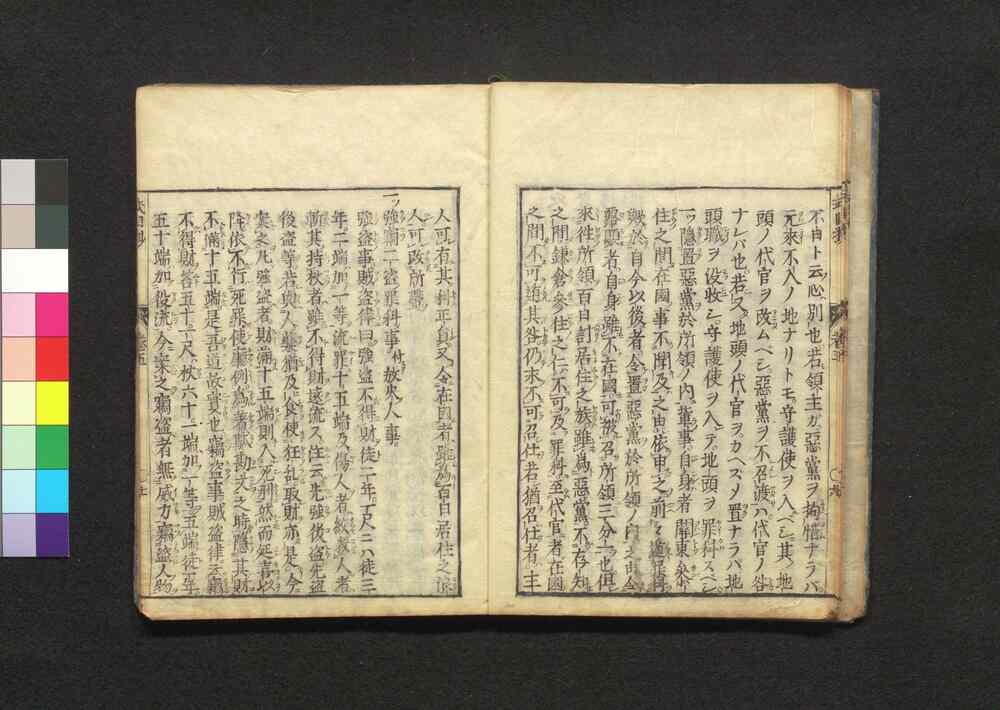 不日ト云心別也若領主ガ惡黨ヲ拘惜ナラバ
元來不入ノ地ナリトモ守護使ヲ入ベシ其地
頭ノ代官ヲ改ムベシ惡黨ヲ不召渡ハ代官ノ咎
ナレバ也若又地頭ノ代官ヲカヘズメ置ナラバ地
頭職ヲ没收シ守護使ヲ入テ地頭ヲ罪科スベシ
一ッ隱置惡黨於所領ノ内輩事自身者關東
住之間在國事不聞及之由依申之前々
歟於自今以後者令置惡黨於所領ノ内之由令
露顯者自身雖不在國可被召所領三分一也但
來往所領百日計居住之族雖爲惡黨不存知
之間鎌倉參住之仁不可及罪科至代官者在國
之間不可遁其咎仍永不可召仕若猶召仕者主
人可有其科正員又令在國者雖爲百日居住之
人可改所職
一ッ強竊二盗罪科事付放火人事
強盗事賊盗律曰強盗不得財徒二年一尺ハ徒三
年二端加一等流罪十五端及傷人者絞殺人者
斬其持杖者雖不得財遠流ス注云先強後盗先盗
後強盗等若與人藥酒及食使狂乱取財亦是今
案之凡強盗者財滿十五端則入死刑然而延喜以
降依不行死罪使事例爲着獄勘文之時隱其財
不滿十五端是善道故實也竊盗事賊盗律云竊
不得財笞五十一尺杖六十一端加一等五端徒一年
五十端加役流今案之竊盗者無威力竊盗人物